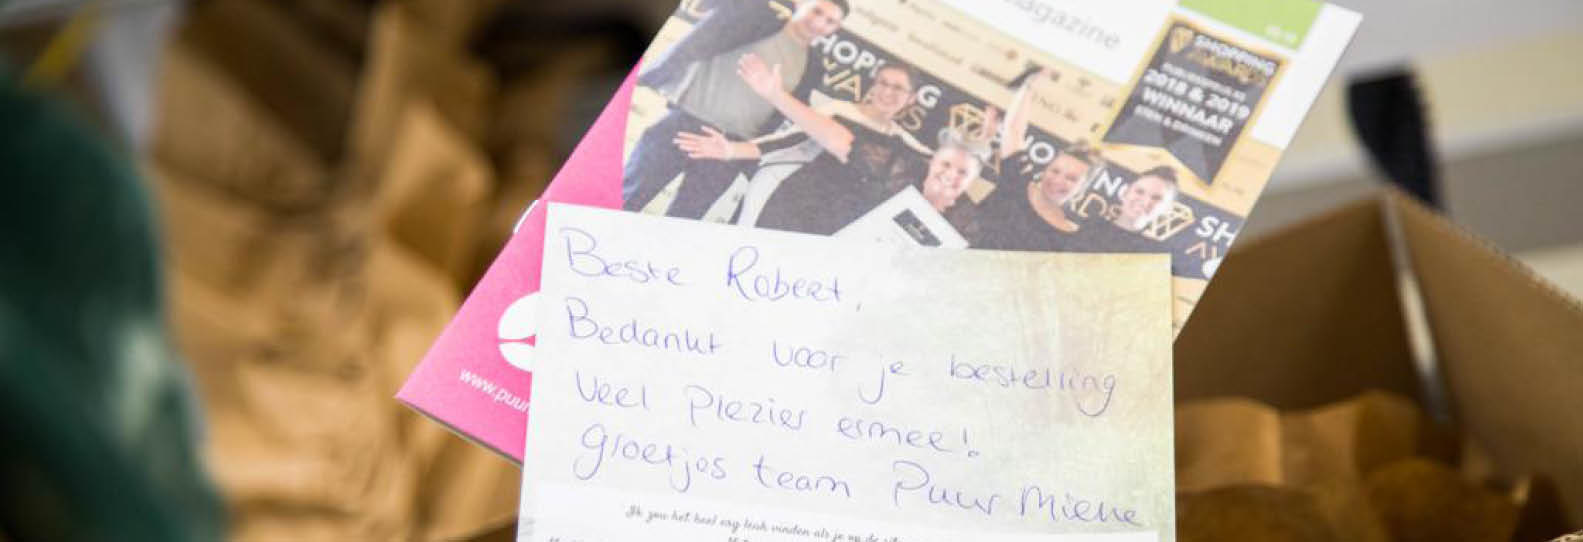 magazine
SHOPPING
AWARDS
2018 & 2019
WINNAAR
ETEN & DRINKEN
Beste Robert,
Bedankt voor je bestelling
veel Plezier ermee!
Groetjes team Puur Mieke
Ik zou het heel erg leuk vinden als je op de
www.puur